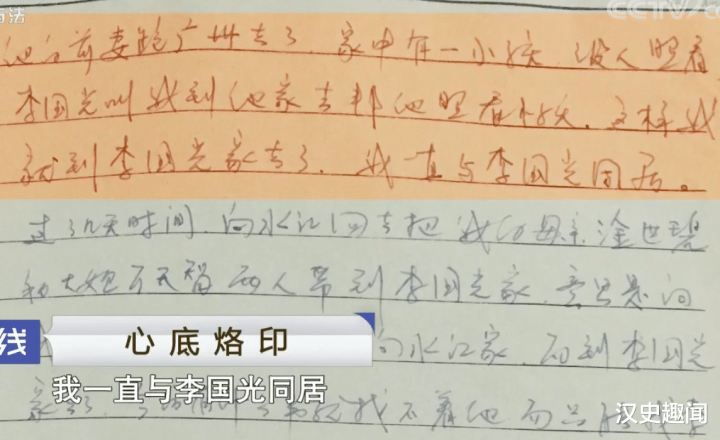 方法
CCTV
他台前妻跑广州去了，家中有一小孩，没人照看
李国光叫我到他家去邦他照看小孩，这样我
就到李国光家去了。我一直与李国光同居。
过了几天时间，向水江回去把我的母亲涂世碧
和大
两人带到李国光家，意思是问
线
心底烙印
向水江家，而到李国光
我一直与李国光同居
家
我不着他而
汉史趣闻